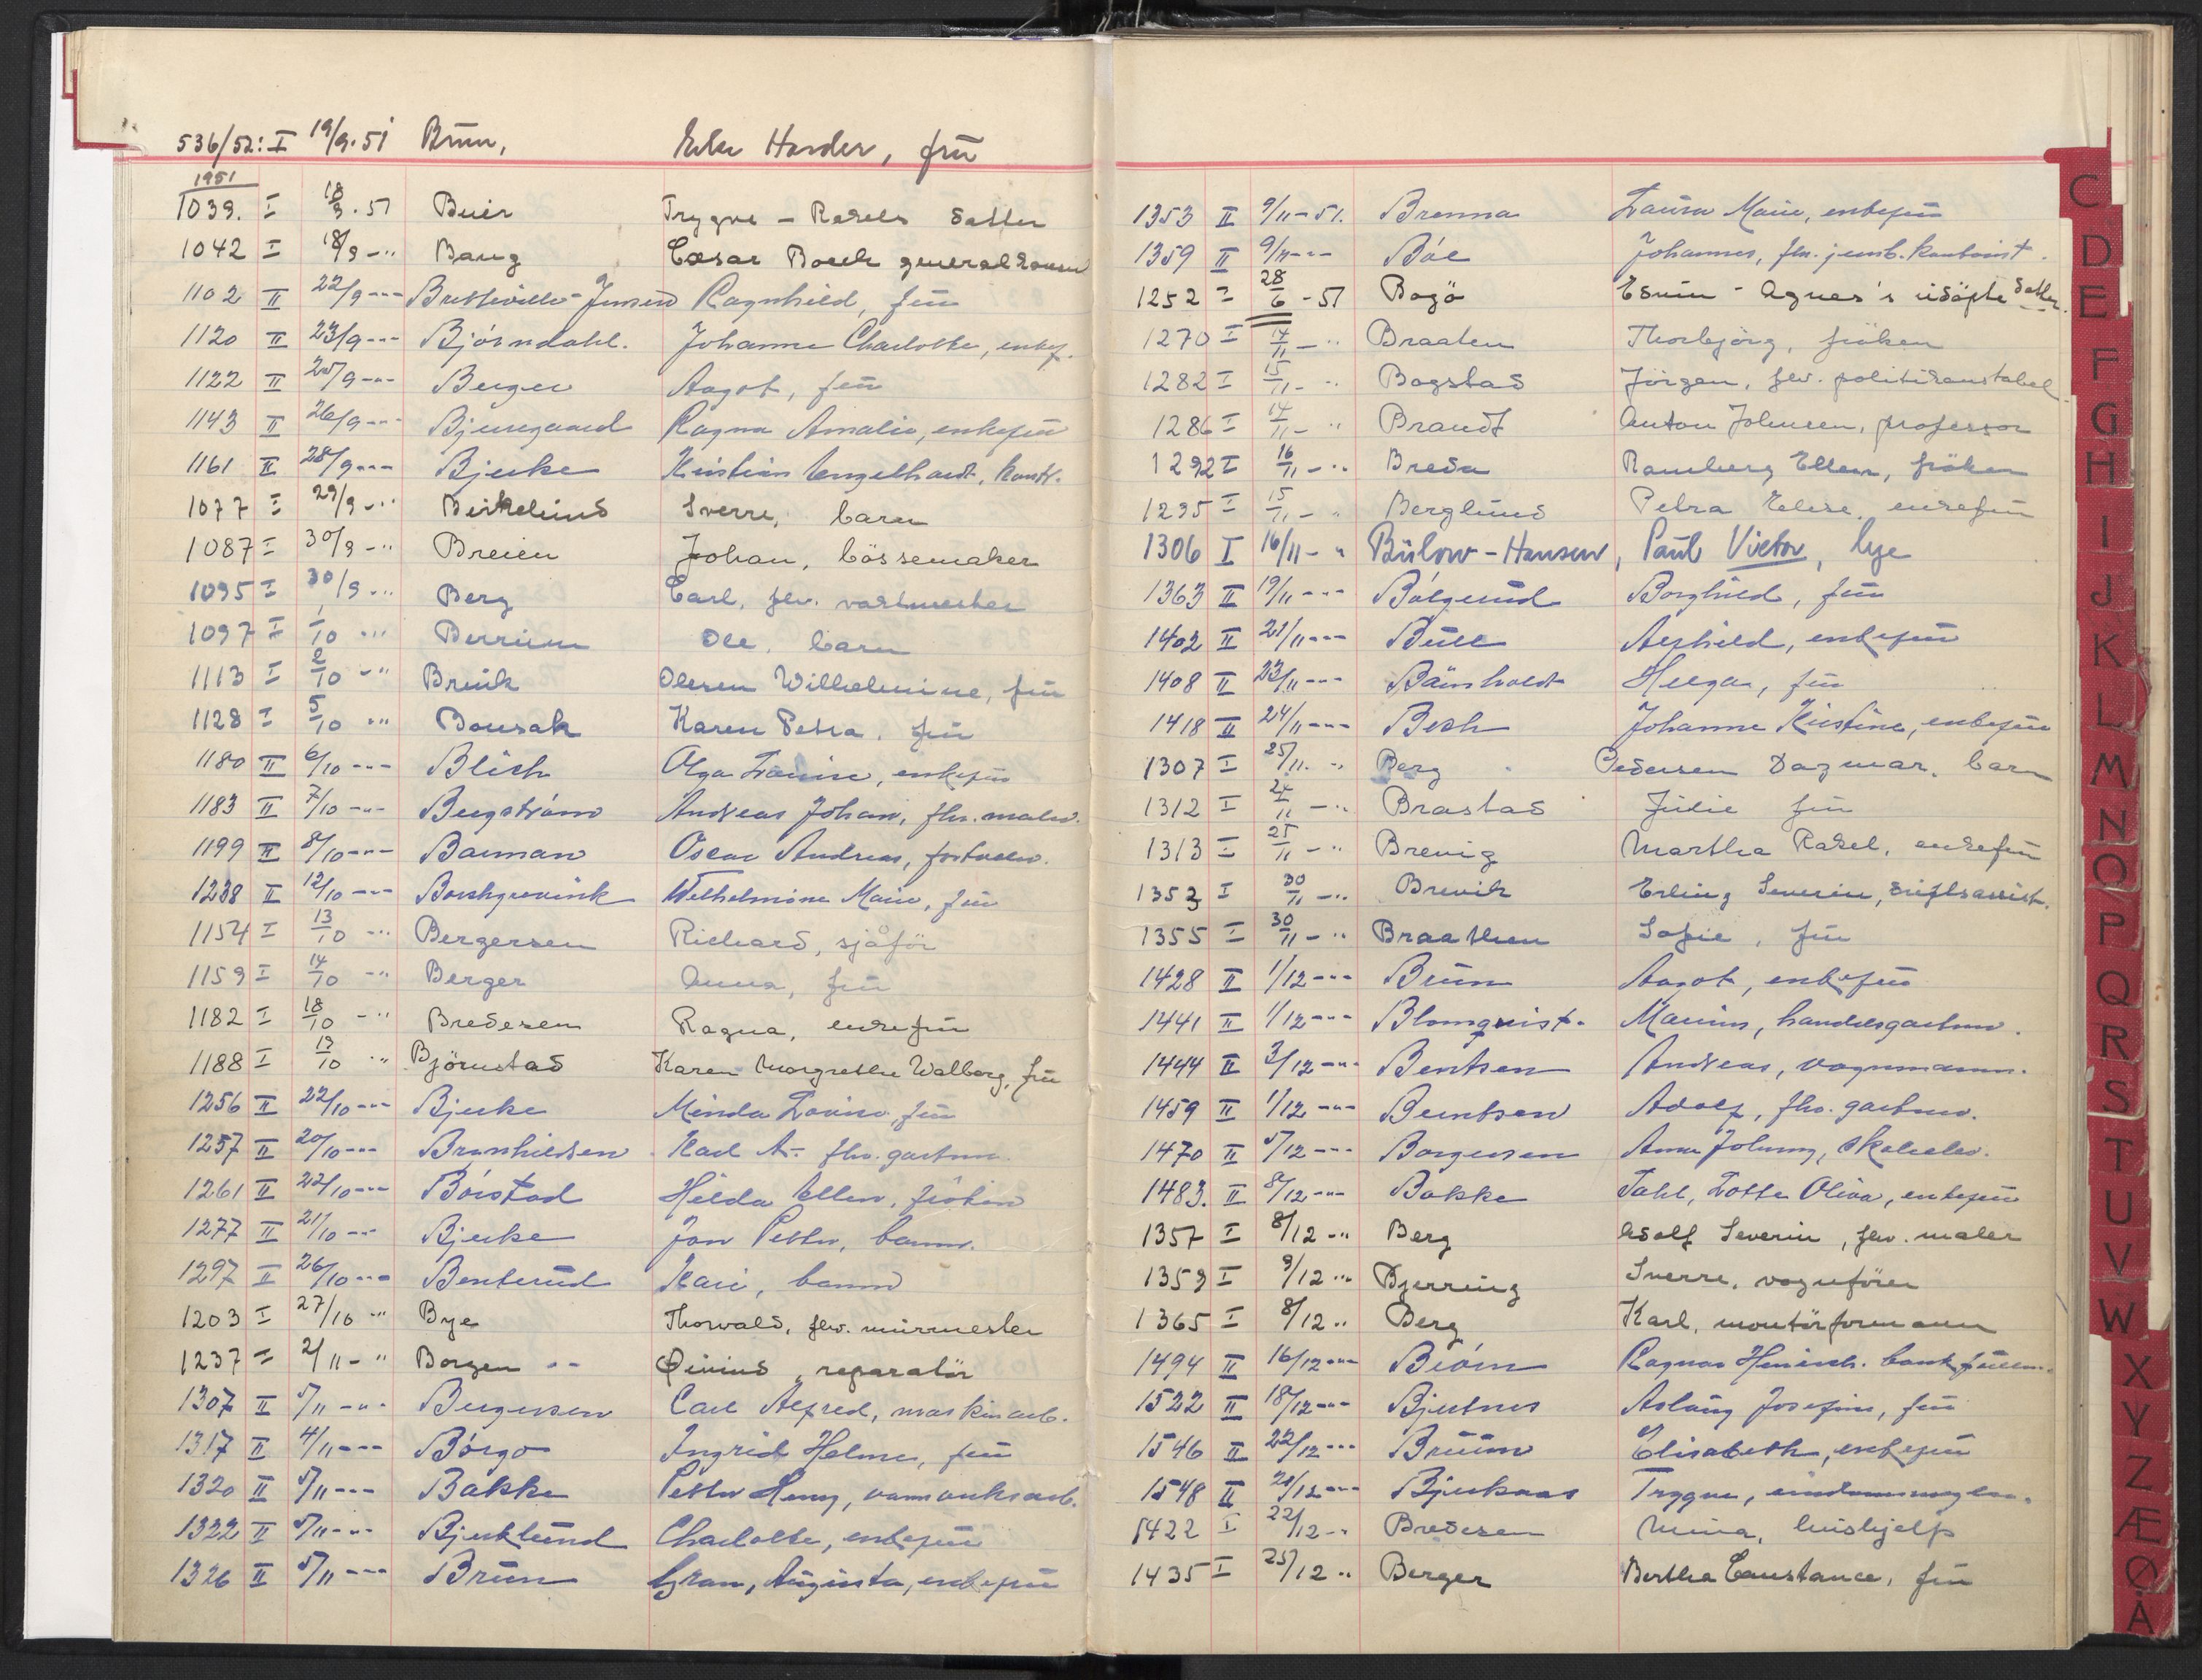 536/52: I 19/9.51 Brun, Harder, frü
1951
1039. I 18/9.51 Buer Trygve - Rakels datter
1042 I 18/9 -" Baug Cæsar Boeck generalkonsul
1102 II 22/9 --- Bretteville-Jensen Ragnhild, frü
1120 II 23/9 --- Bjørndahl. Johanne Charlotte, enkef.
1122 II 25/9 --- Berger Aagot, frü
1143 II 26/9 --- Bjerregaard Ragna Amalie, enkefrü
1161 II 28/9 --- Bjerke Kristian Engelhardt, kontr.
1077 I 29/9 -" Birkelund Sverre, barn
1087 I 30/9 -" Breien Johan, bössemaker
1095 I 30/9 -" Berg Carl, fhv. vaktmester
1097 I 1/10 -" Berrum Ole, barn
1113 I 2/10 -" Breivik Olesen Wilhelmine, frü
1128 I 5/10 -" Bousak Karen Petra, frü
1180 II 6/10 --- Blich Olga Louise, enkefrü
1183 II 7/10 --- Bergstrøm Andreas Johan, fhv. maler.
1199 II 8/10 --- Barman Oscar Andreas,
1238 II 12/10 --- Borchgrevink Wilhelmine Marie, frü
1154 I 13/10 -" Bergersen Richard, sjåför
1159 I 14/10 -" Berger Anna, frü
1182 I 18/10 -" Bredesen Ragna, enkefrü
1188 I 19/10 -" Björnstad Karen Margrethe Walborg, frü
1256 II 22/10 --- Bjerke Minda Lovise, frü
1257 II 20/10 --- Brynhildsen Karl A. fhv. gartner
1261 II 22/10 --- Børstad Hilda Ellen, frøken
1277 II 21/10 --- Bjerke Jan Petter, barn.
1297 II 26/10 --- Benterud Kari, barn
1203 I 27/10 -" Bye Thorvald, fhv. mürmester
1237 I 2/11 -" Borgen Øivind, reparatör
1307 II 5/11 --- Bergersen Carl Alfred, maskinarb.
1317 II 4/11 --- Børgo Ingrid Helene, frü
1320 II 5/11 --- Bakke Petter Henry,
1322 II 5/11 --- Bjerklund Charlotte, enkefrü
1326 II 5/11 --- Brün Gran, Augusta, enkefrü
1353 II 9/11 - 51. Brenna Laura Marie, enkefrü
1359 II 9/11 --- Bøe Johannes, fhv. jernb. kontorist.
1252 I 28/6 - 51 Bogö Agnes's üdöpte datter.
1270 I 14/11 -" Braaten Thorbjörg, fröken
1282 I 15/11 -" Bogstad Jörgen, fhv. politikonstabel
1286 I 14/11 -" Brandt Anton Johnsen, professor
1292 I 16/11 -" Breda Ramberg Ellen, fröken
1295 I 15/11 -" Berglünd Petra Elise, enkefrü
1306 I 16/11 -" Bülow-Hansen, Paul Victor, lge
1363 II 19/11 --- Bølgerud Borghild, frü
1402 II 21/11 --- Büll Alfhild, enkefrü
1408 II 23/11 --- Bärnholdt Helga, frü
1418 II 24/11 --- Besh Johanne Kristine, enkefrü
1307 I 25/11. -" Berg Pedersen Dagmar, barn
1312 I 24/11 -" Brastad Julie frü
1313 I 25/11 -" Brevig Martha Rakel, enkefrü
1353 I 30/11 -" Brevik Erling Severin, driftsassist.
1355 I 30/11 -" Braathen Sofie, frü
1428 II 1/12 --- Brünn Aagot, enkefrü
1441 II 1/12 --- Blomqvist. Marius, handelsgartner.
1444 II 3/12 --- Bentsen Andreas, vognmann.
1459 II 1/12 --- Berntsen Adolf, fhv. gartner.
1470 II 5/12 --- Borgersen Arne Johnny, skoleelev.
1483. II 8/12 --- Bakke Dahl, Lotte Oliva, enkefrü
1357 I 8/12 -" Berg Adolf Severin, fhv. maler
1359 I 9/12 -" Bjerring Sverre, vognförer
1365 I 8/12 " Berg Karl, montörformann
1494 II 16/12 --- Biørn Ragnar Henrich. bankfullm.
1522 II 18/12 --- Bjertnes Aslaug Josefine, frü
1546 II 22/12 --- Bruun Elisabeth, enkefrü
1548 II 21/12 --- Bjerknes Trygve,
1422 I 22/12 -" Bredesen Mina, hüshjelp
1435 I 25/12 " Berger Bertha Constance, frü
C
D
E
F
G
H
I
J
K
L
M
N
O
P
Q
R
S
T
U
V
W
X
Y
Z
Æ
Ø
Å